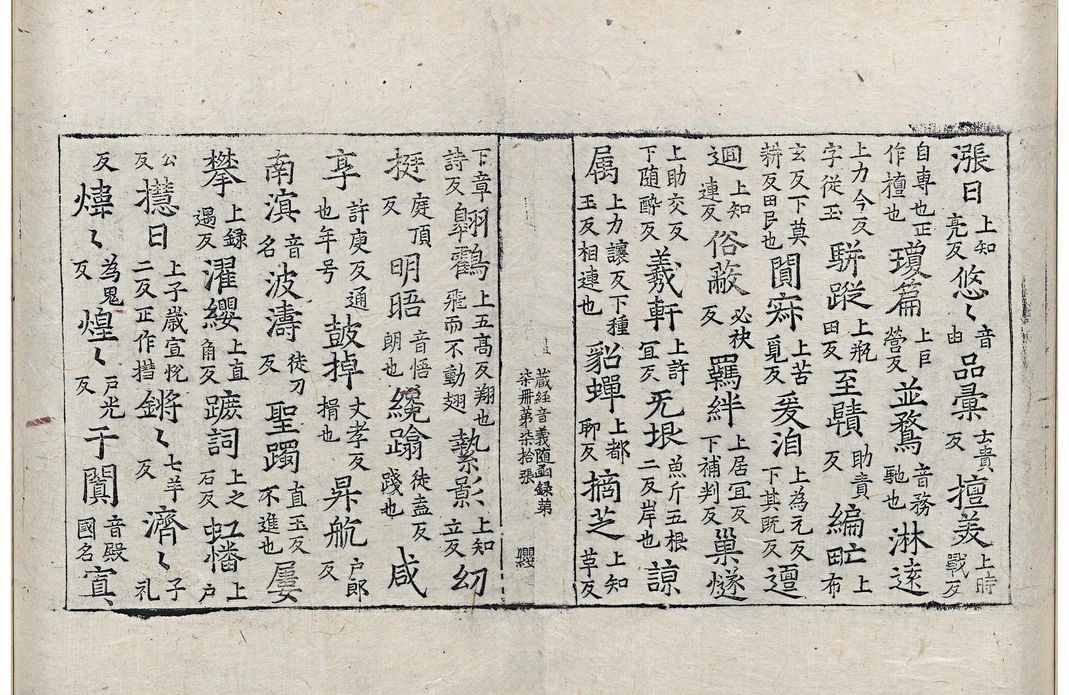 漲日上知亮反悠〻音由品彙云貴反擅美上時戰反
自專也正作檀也瓊篇上巨營反並騖音務馳也淋遠
上力今反字從玉駢蹤上瓶田反至賾助責反編甿上布
玄反下莫耕反田民也閴寂上苦覓反爰洎上為元反下其既反邅
迴上知連反俗蔽必袂反羈絆上居宜反下補判反巢燧
上助交反下随醉反羲軒上許宜反无垠魚斤五根二反岸也諒
属上力讓反下種玉反相連也貂蟬上都聊反摘芝上知革反
蔵経音義随函録第
柒冊第柒拾張
纓
下章詩反翶鸖上五高反翔也飛而不動翅縶影上知立反幻
挺庭頂反明晤音悟朗也繞蹹徒盍反踐也咸
享許庚反通也年号鼓掉丈孝反捐也昇航户郎反
南滇音名波濤徒刀反聖躅直玉反不進也屢
攀上録遇反濯纓上直角反蹠詞上之石反虹幡上户
公反㨹日上子歲宣悦二反正作撍鏘〻七羊反濟〻子礼
反煒〻為鬼反煌〻户光反于闐音殿國名寘